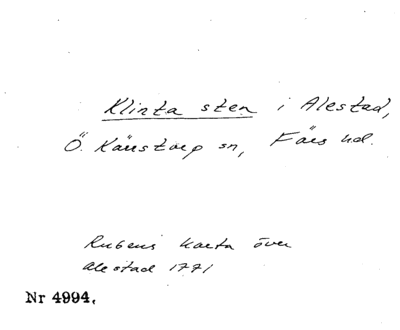 Klinta sten i Alestad,
Ö. Kärrstorp sn, Färs hd.
Rubens karta över
Alestad 1771
Nr 4994.